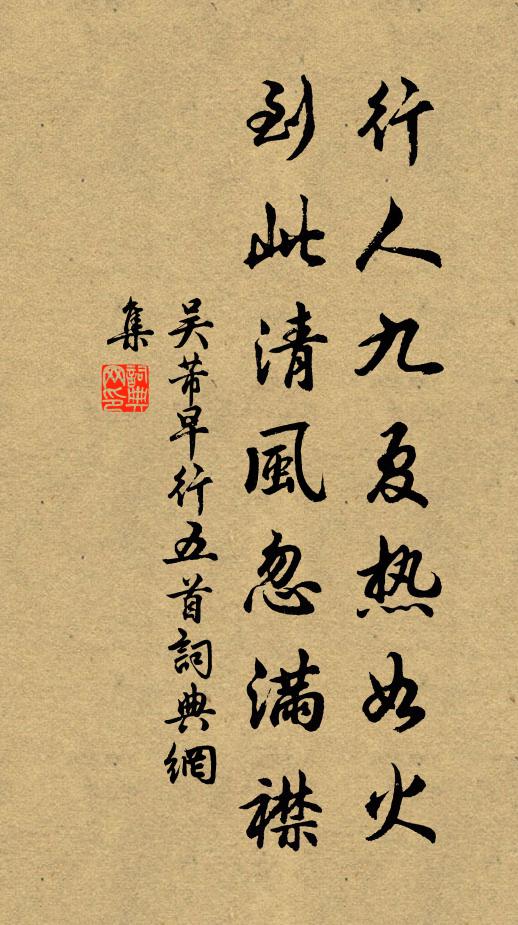 行人九夏热如火
到此清風忽滿襟
吴芾早行五首詞典網
集
詞典網印